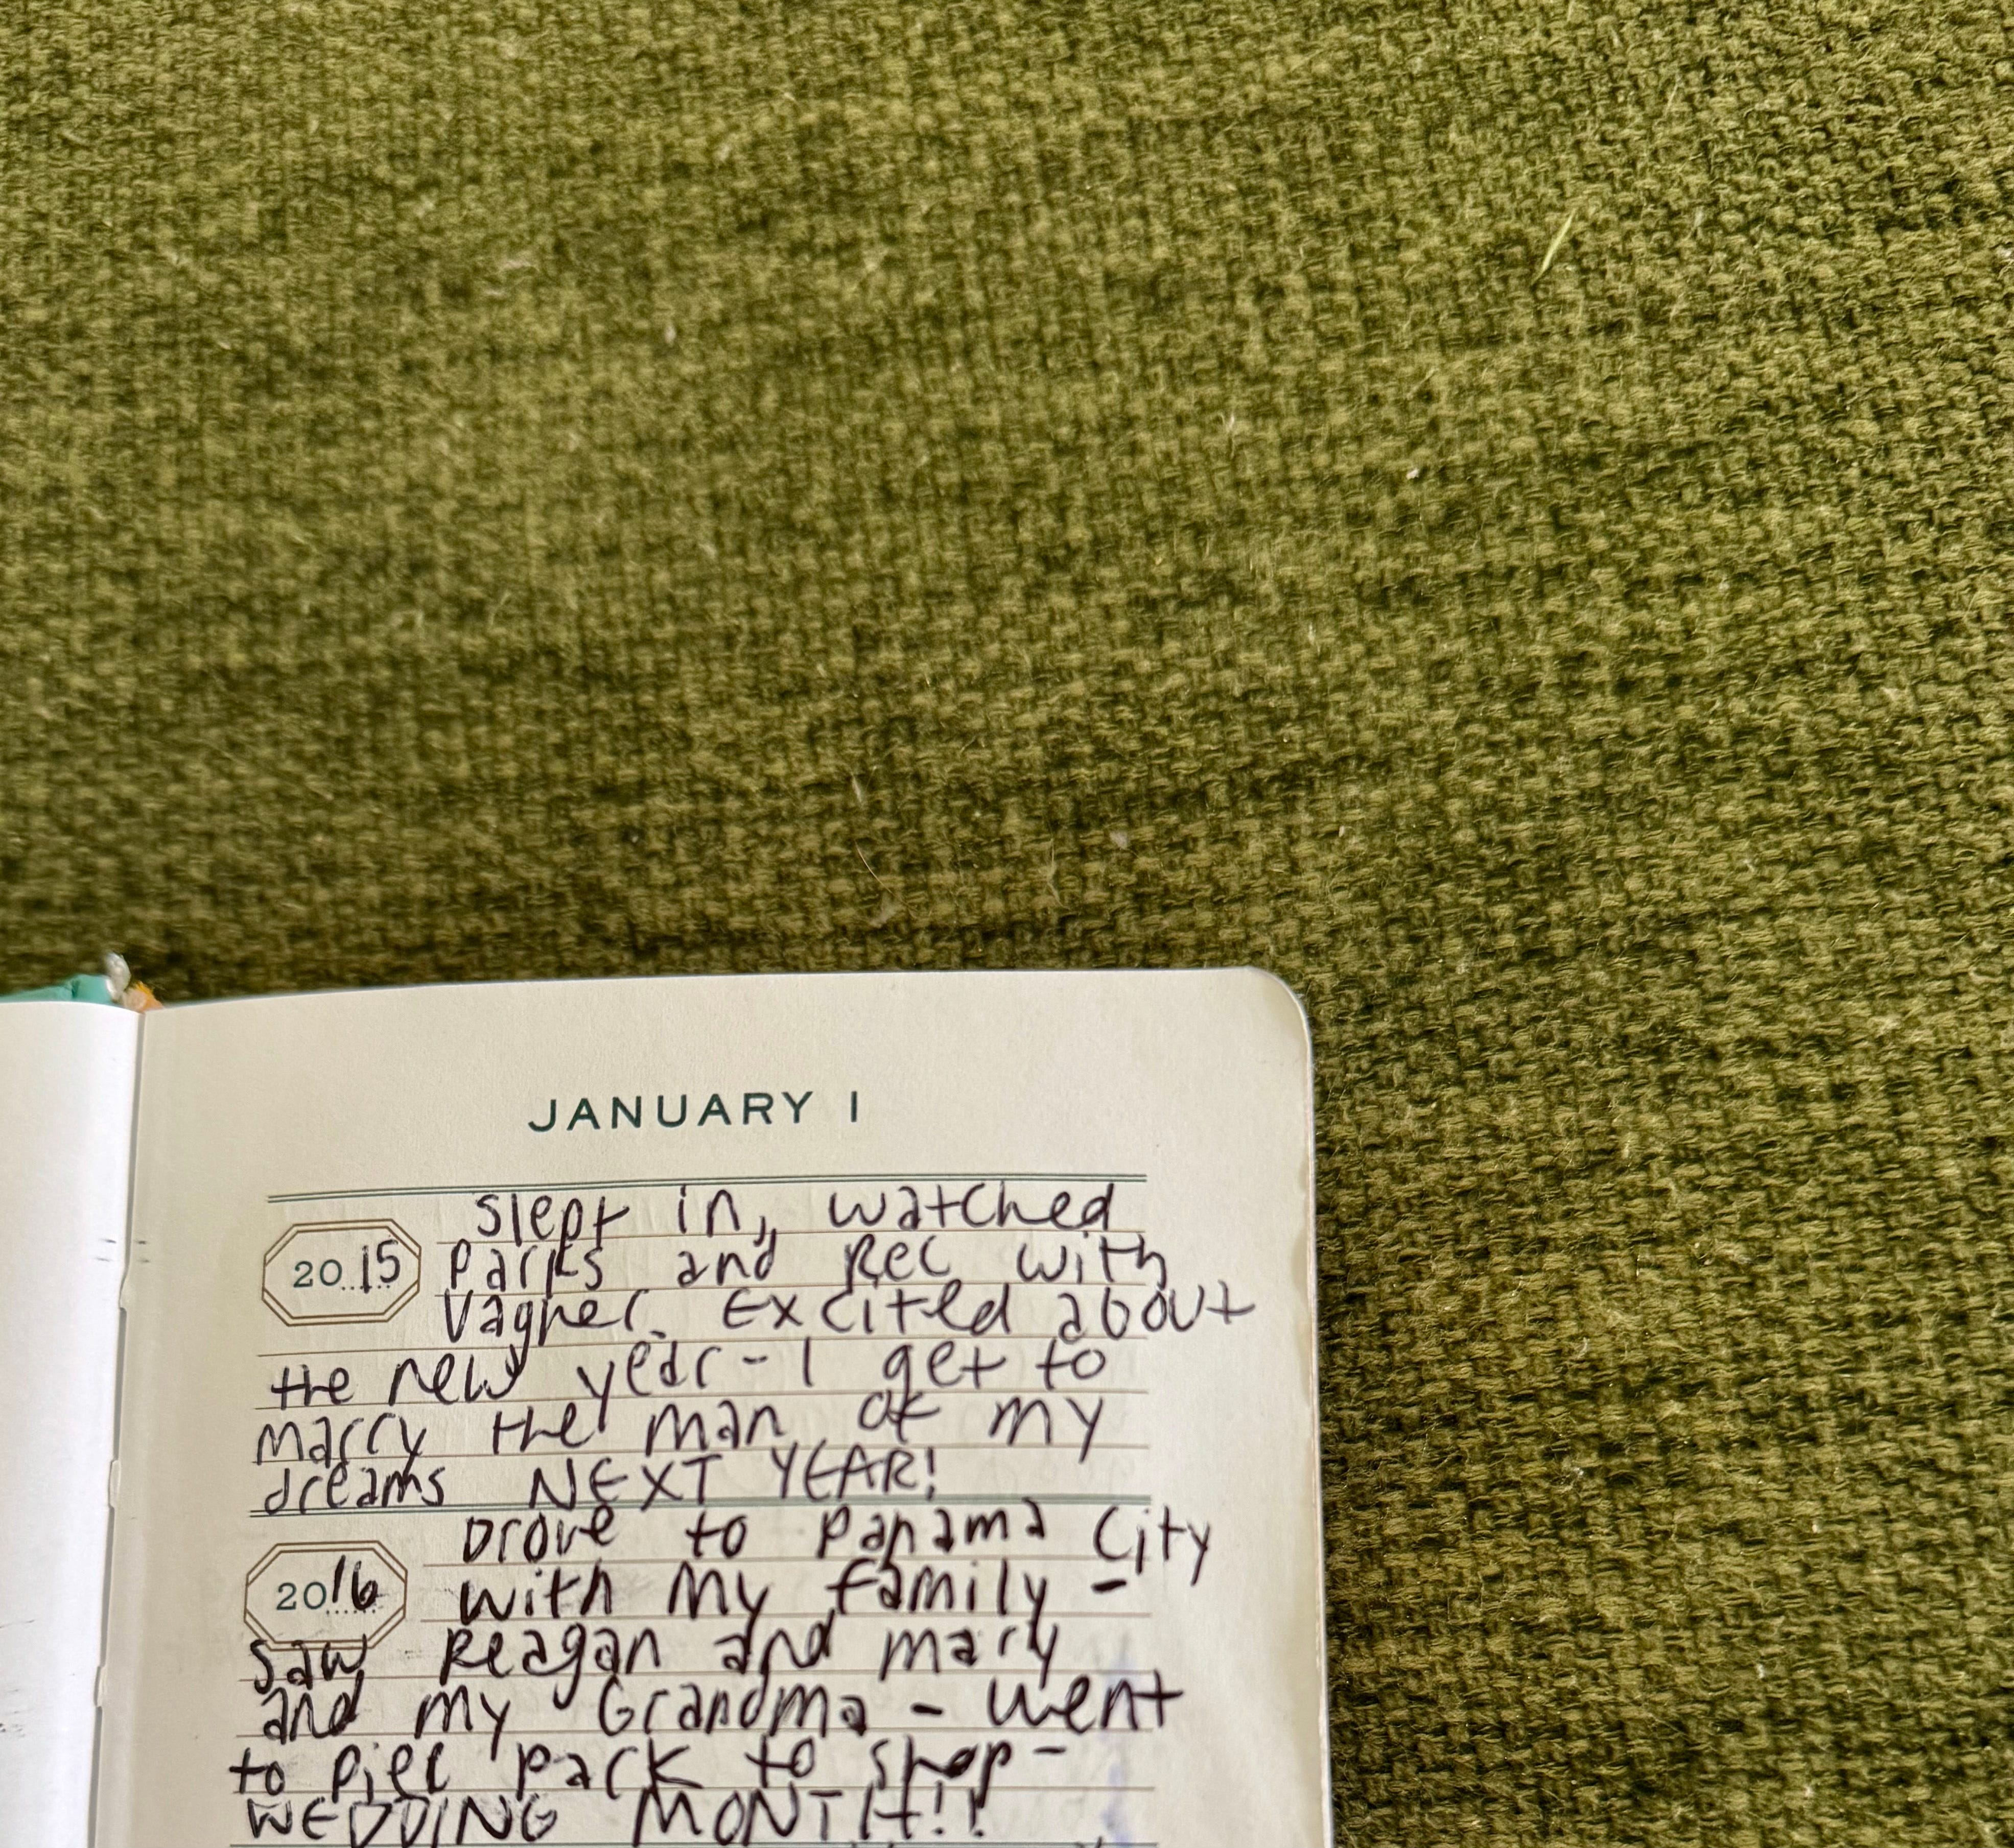 JANUARY 1
slept in, watched
2015 Parks and Rec with
Vagner. Excited about
the new year - I get to
marry the man of my
dreams NEXT YEAR!
Drove to Panama City
2016 with my family -
saw Reagan and Mary
and my Grandma - went
to Pier Park to shop -
WEDDING MONTH!!